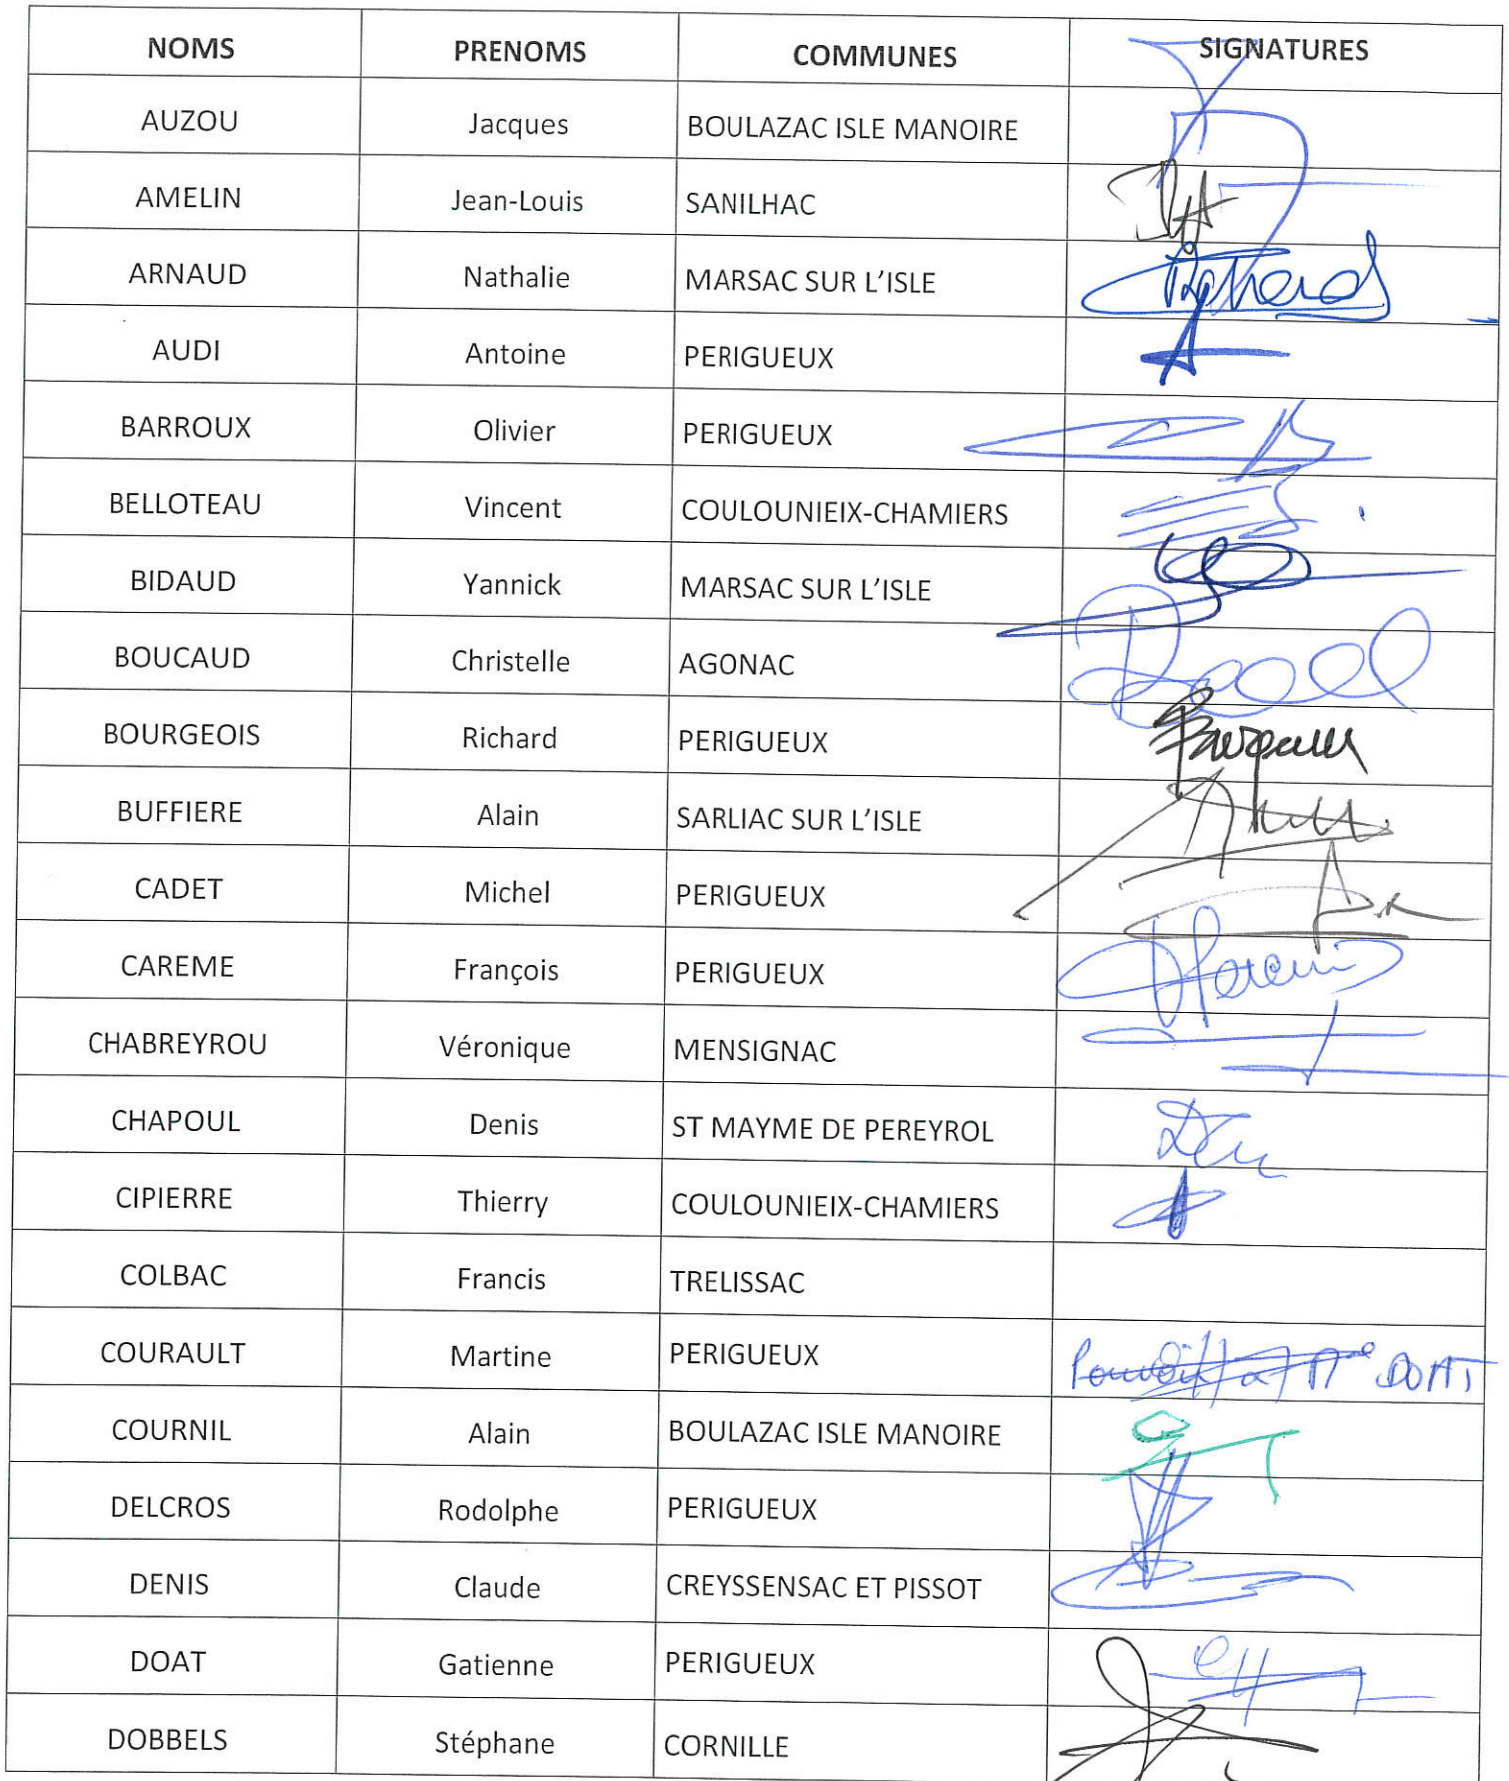 NOMS PRENOMS COMMUNES SIGNATURES
AUZOU Jacques BOULAZAC ISLE MANOIRE
AMELIN Jean-Louis SANILHAC
ARNAUD Nathalie MARSAC SUR L'ISLE
AUDI Antoine PERIGUEUX
BARROUX Olivier PERIGUEUX
BELLOTEAU Vincent COULOUNIEIX-CHAMIERS
BIDAUD Yannick MARSAC SUR L'ISLE
BOUCAUD Christelle AGONAC
BOURGEOIS Richard PERIGUEUX
BUFFIERE Alain SARLIAC SUR L'ISLE
CADET Michel PERIGUEUX
CAREME François PERIGUEUX
CHABREYROU Véronique MENSIGNAC
CHAPOUL Denis ST MAYME DE PEREYROL
CIPIERRE Thierry COULOUNIEIX-CHAMIERS
COLBAC Francis TRELISSAC
COURAULT Martine PERIGUEUX Pouvoir à Me DOAT
COURNIL Alain BOULAZAC ISLE MANOIRE
DELCROS Rodolphe PERIGUEUX
DENIS Claude CREYSSENSAC ET PISSOT
DOAT Gatienne PERIGUEUX
DOBBELS Stéphane CORNILLE